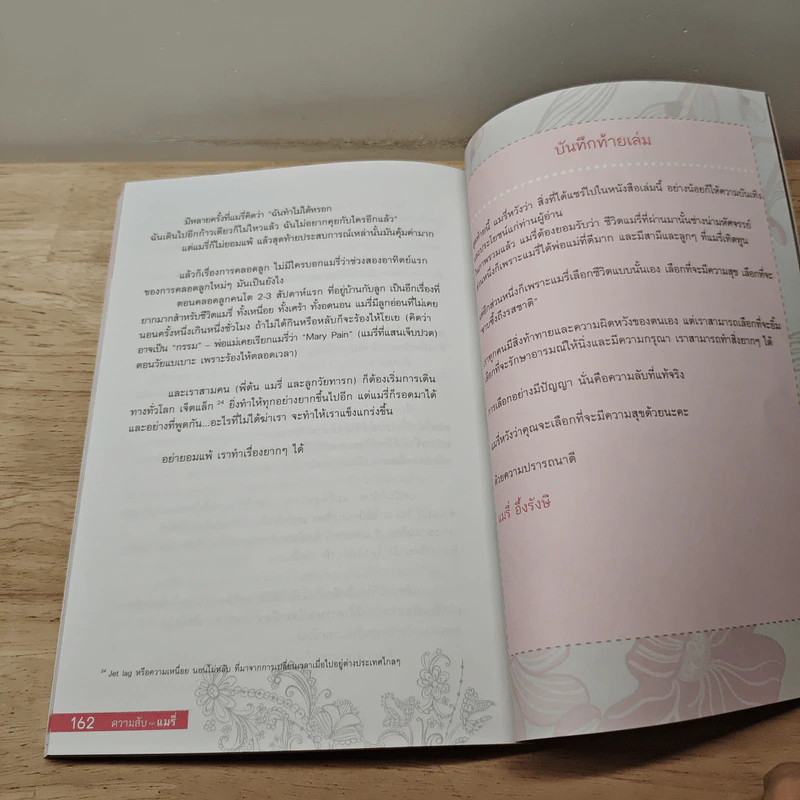 มีหลายครั้งที่แมรี่คิดว่า "ฉันทำไม่ได้หรอก
ฉันเดินไปอีกก้าวเดียวก็ไม่ไหวแล้ว ฉันไม่อยากคุยกับใครอีกแล้ว"
แต่แมรี่ก็ไม่ยอมแพ้ แล้วสุดท้ายประสบการณ์เหล่านั้นมันคุ้มค่ามาก
แล้วก็เรื่องการคลอดลูก ไม่มีใครบอกแมรี่ว่าช่วงสองอาทิตย์แรก
ของการคลอดลูกใหม่ๆ มันเป็นยังไง
ตอนคลอดลูกคนโต 2-3 สัปดาห์แรก ที่อยู่บ้านกับลูก เป็นอีกเรื่องที่
ยากมากสำหรับชีวิตแมรี่ ทั้งเหนื่อย ทั้งเศร้า ทั้งอดนอน แมรี่มีลูกอ่อนที่ไม่เคย
นอนครั้งหนึ่งเกินหนึ่งชั่วโมง ถ้าไม่ได้กินหรือหลับก็จะร้องไห้โยเย (คิดว่า
อาจเป็น "กรรม" – พ่อแม่เคยเรียกแมรี่ว่า "Mary Pain" (แมรี่ที่แสนเจ็บปวด)
ตอนวัยแบเบาะ เพราะร้องไห้ตลอดเวลา)
และเราสามคน (พี่ต้น แมรี่ และลูกวัยทารก) ก็ต้องเริ่มการเดิน
ทางทั่วโลก เจ็ตแล็ก 24 ยิ่งทำให้ทุกอย่างยากขึ้นไปอีก แต่แมรี่ก็รอดมาได้
และอย่างที่พูดกัน...อะไรที่ไม่ได้ฆ่าเรา จะทำให้เราแข็งแกร่งขึ้น
อย่ายอมแพ้ เราทำเรื่องยากๆ ได้
24 Jet lag หรือความเหนื่อย นอนไม่หลับ ที่มาจากการเปลี่ยนเวลาเมื่อไปอยู่ต่างประเทศไกลๆ
162 ความลับ แมรี่
บันทึกท้ายเล่ม
แมรี่หวังว่า สิ่งที่ได้แชร์ไปในหนังสือเล่มนี้ อย่างน้อยก็ให้ความบันเทิง
ประโยชน์แก่ท่านผู้อ่าน
ภาพรวมแล้ว แมรี่ต้องยอมรับว่า ชีวิตแมรี่ที่ผ่านมานั้นช่างน่ามหัศจรรย์
หนึ่งก็เพราะแมรี่ได้พ่อแม่ที่ดีมาก และมีสามีและลูกๆ ที่แมรี่เทิดทูน
อีกส่วนหนึ่งก็เพราะแมรี่เลือกชีวิตแบบนั้นเอง เลือกที่จะมีความสุข เลือกที่จะ
ซึ้งถึงรสชาติ"
เราทุกคนมีสิ่งท้าทายและความผิดหวังของตนเอง แต่เราสามารถเลือกที่จะยิ้ม
เลือกที่จะรักษาอารมณ์ให้นิ่งและมีความกรุณา เราสามารถทำสิ่งยากๆ ได้
การเลือกอย่างมีปัญญา นั่นคือความลับที่แท้จริง
แมรี่หวังว่าคุณจะเลือกที่จะมีความสุขด้วยนะคะ
ด้วยความปรารถนาดี
แมรี่ อึ้งรังษี